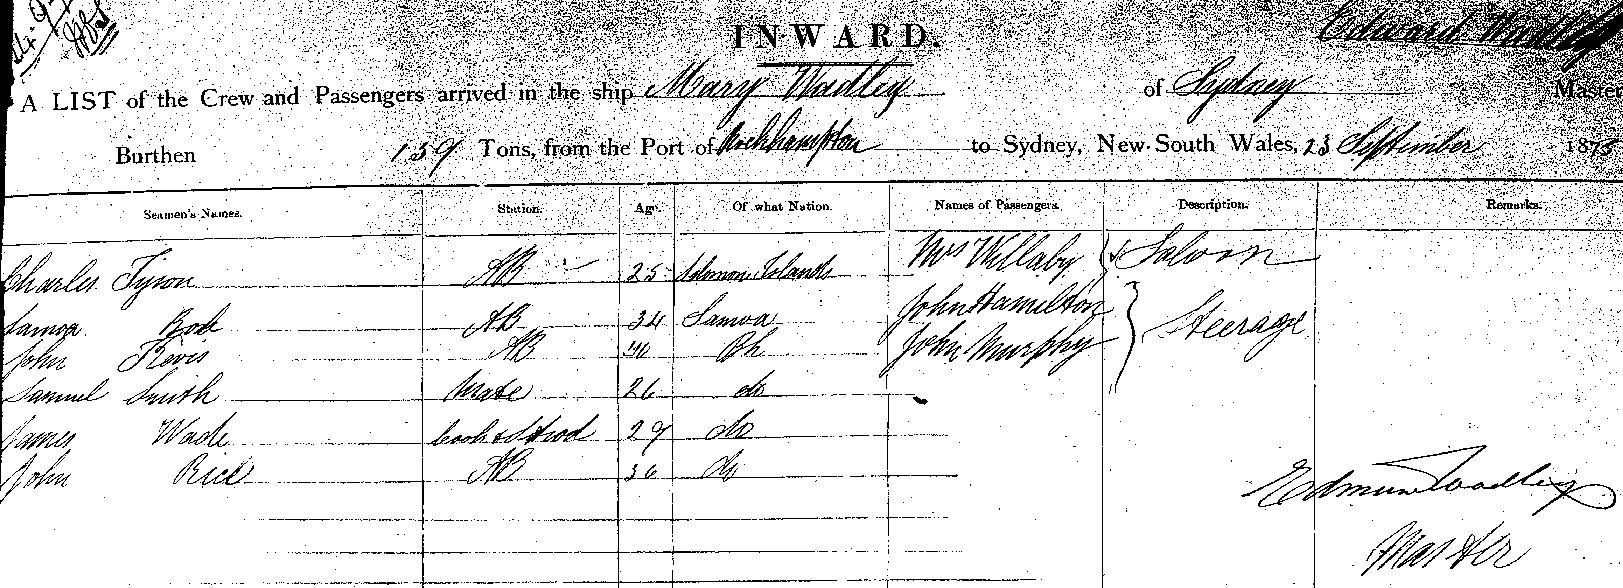 INWARD.
A LIST of the Crew and Passengers arrived in the ship Mary Wadley of Sydney Master
Burthen 139 Tons, from the Port of Rockhampton to Sydney, New South Wales, 23 September 1875
Seamen's Names. Station. Age. Of what Nation. Names of Passengers. Description. Remarks.
Charles Tyson AB 25 Islands Mrs Willaby Saloon
Samoa Bob AB 34 Samoa John Hamilton Steerage
John AB John Murphy
Samuel Smith Mate 26 do
James Wade Cook & Stwd 29 do
John Rice AB 36 do
Wadley
Master